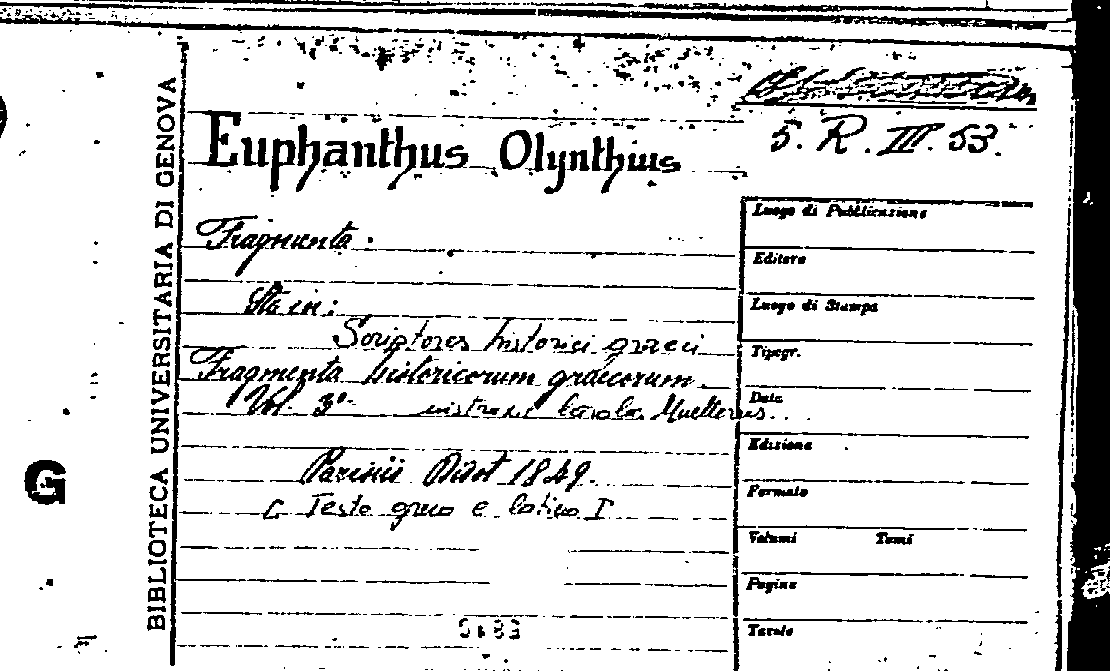 BIBLIOTECA UNIVERSITARIA DI GENOVA
G
5. R. III. 53.
Euphanthus Olynthius
Fragmenta.
Sta in:
Scriptores historici graeci
Fragmenta historicorum graecorum.
Vol. 3°
Muellerus.
Parisii Didot 1849.
Testo greco e latino
Luogo di Pubblicazione
Editore
Luogo di Stampa
Tipogr.
Data
Edizione
Formato
Volumi Tomi
Pagine
Tavole